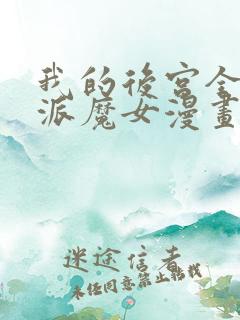 我的後宮全
派魔女漫畫
迷途信者
未任同意禁止轉載